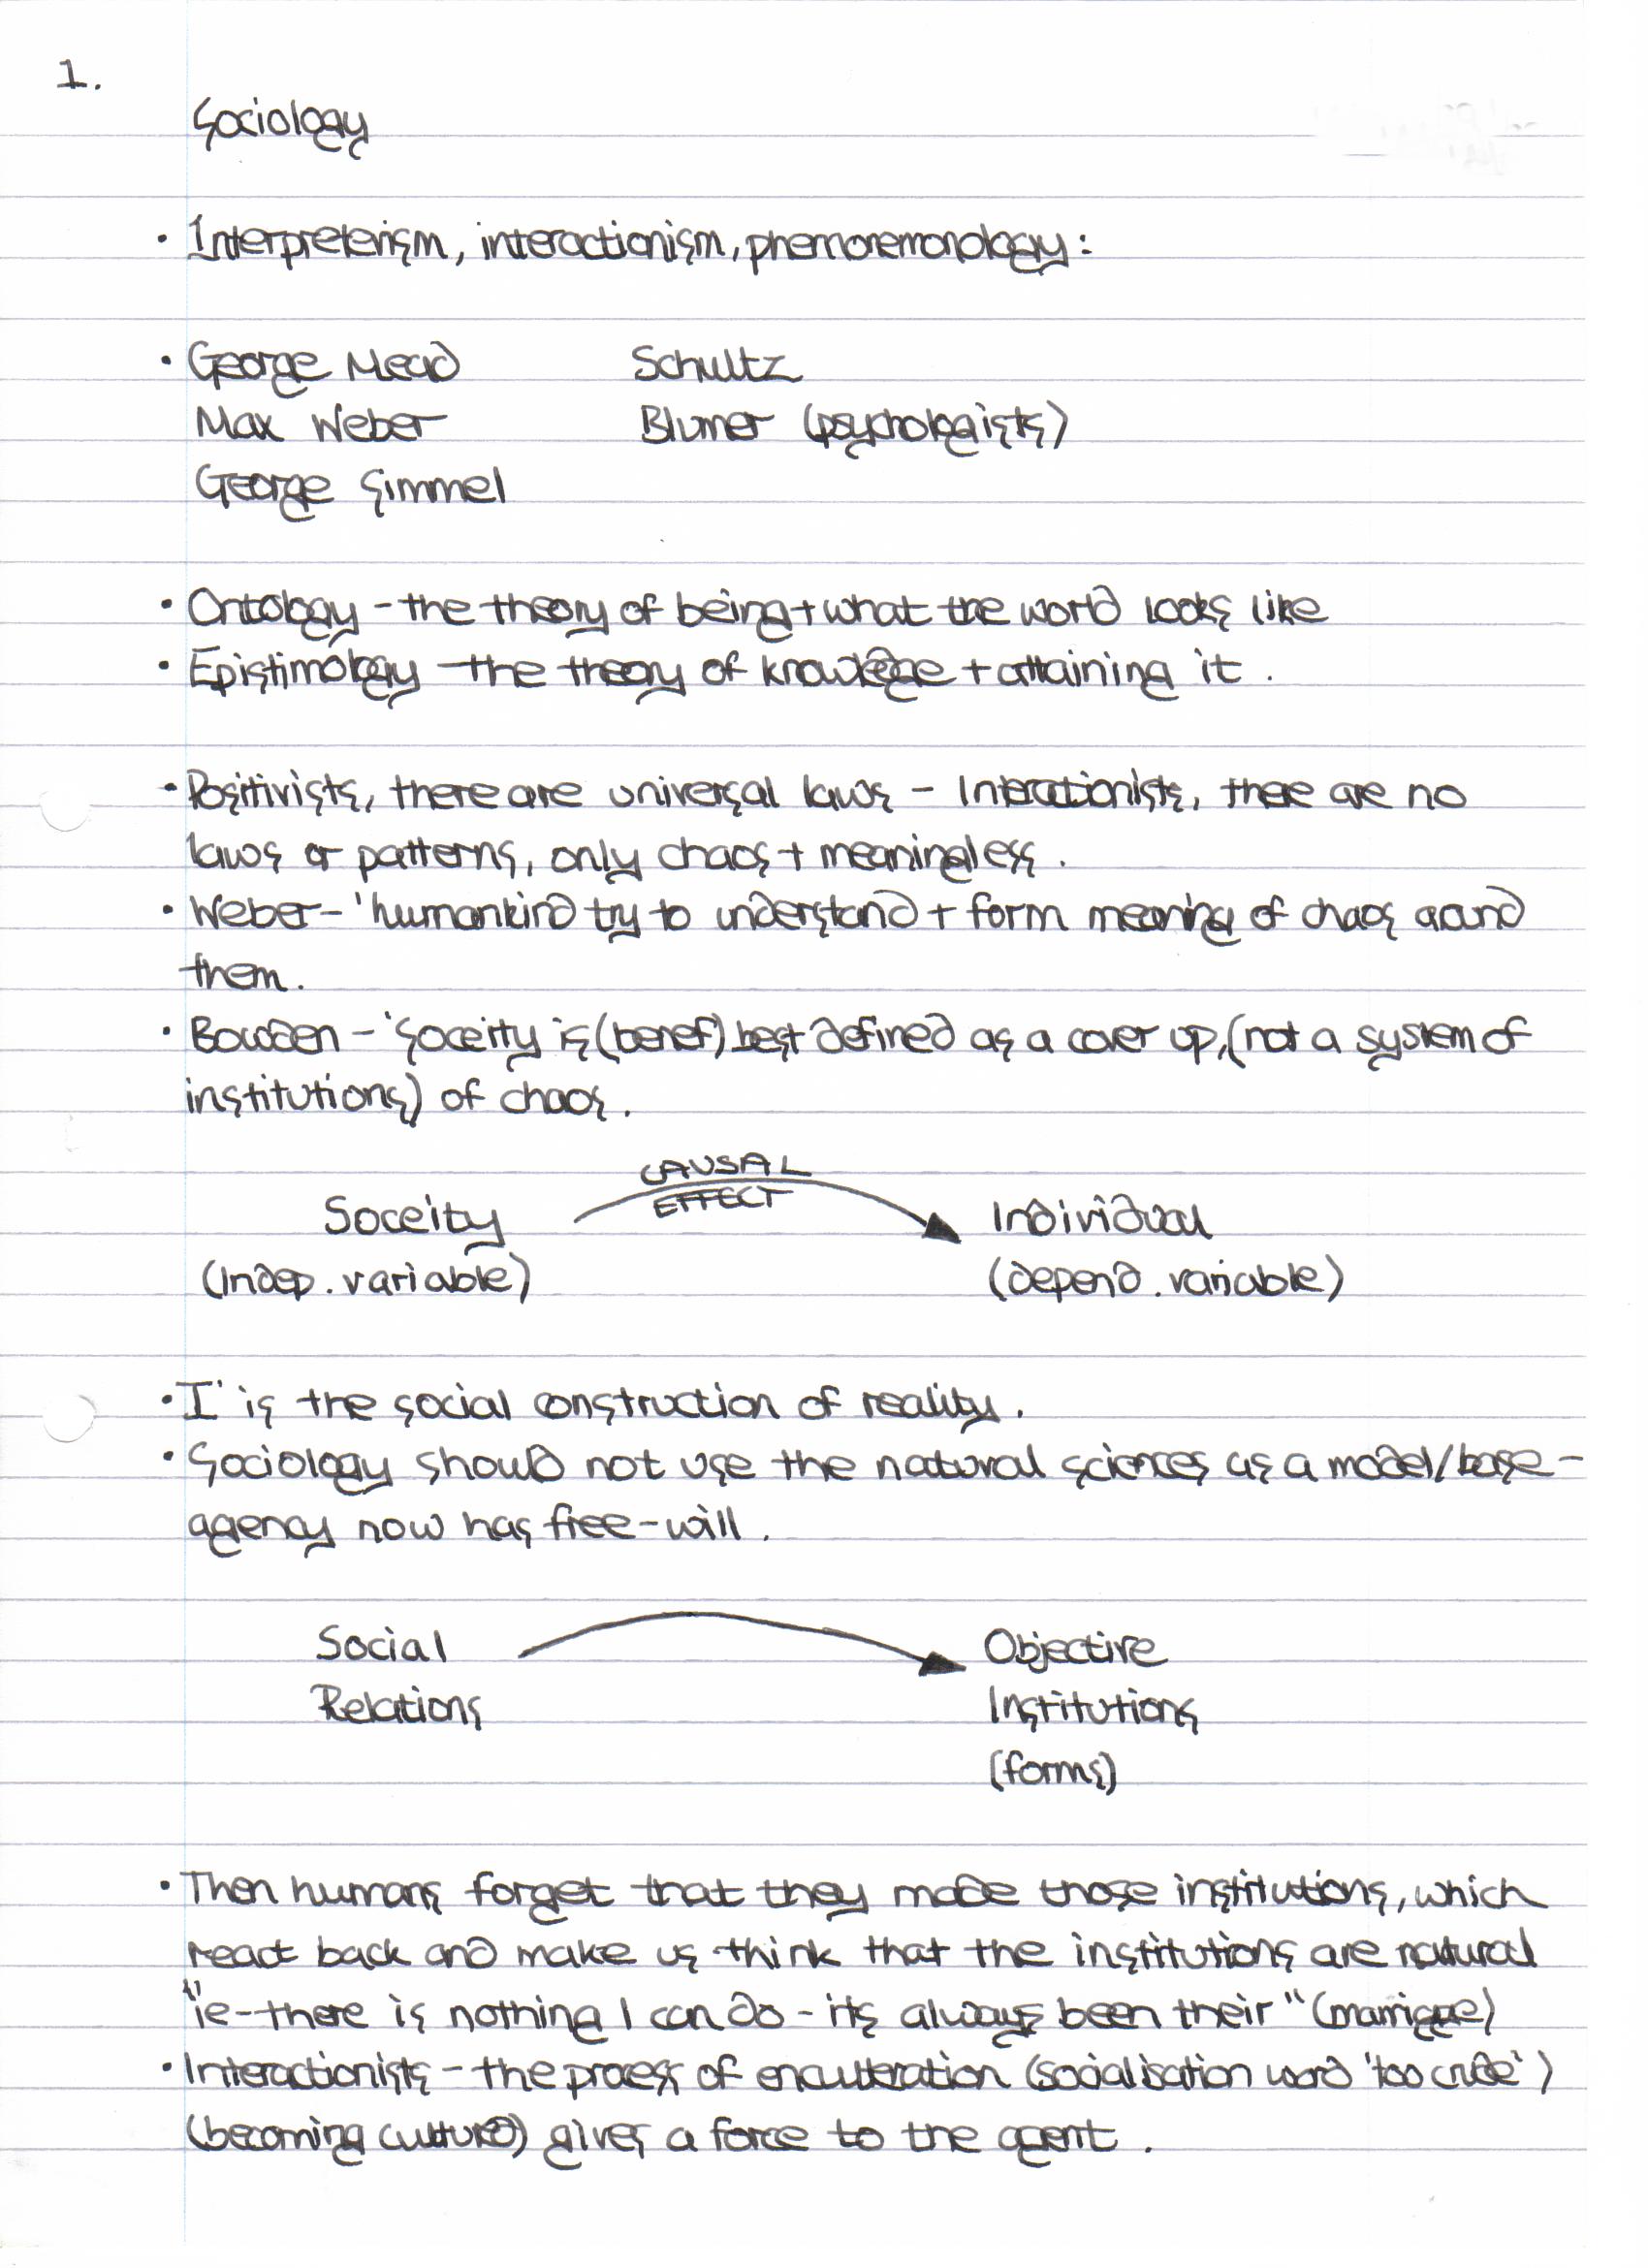 1.
Sociology
• Interpreterism, interactionism, phemoremonology:
• George Mead Schultz
Max Weber Blumer (psychologists)
George Simmel
• Ontology - the theory of being + what the world looks like
• Epistimology - the theory of knowledge + attaining it.
• Positivists, there are universal laws - Interactionists, there are no
laws or patterns, only chaos + meaningless.
• Weber - 'humankind try to understand + form meaning of chaos around
them.
• Bowden - 'Soceity is (benef) best defined as a cover up, (not a system of
institutions) of chaos.
CAUSAL
EFFECT
Soceity Individual
(Indep. variable) (depend. variable)
• I' is the social construction of reality.
• Sociology should not use the natural sciences as a model/base -
agency now has free-will.
Social Objective
Relations Institutions
(forms)
• Then humans forget that they made those institutions, which
react back and make us think that the institutions are natural
"ie - there is nothing I can do - its always been their" (marrigae)
• Interactionists - the process of enculteration (socialisation word 'too crude')
(becoming cultured) gives a force to the agent.